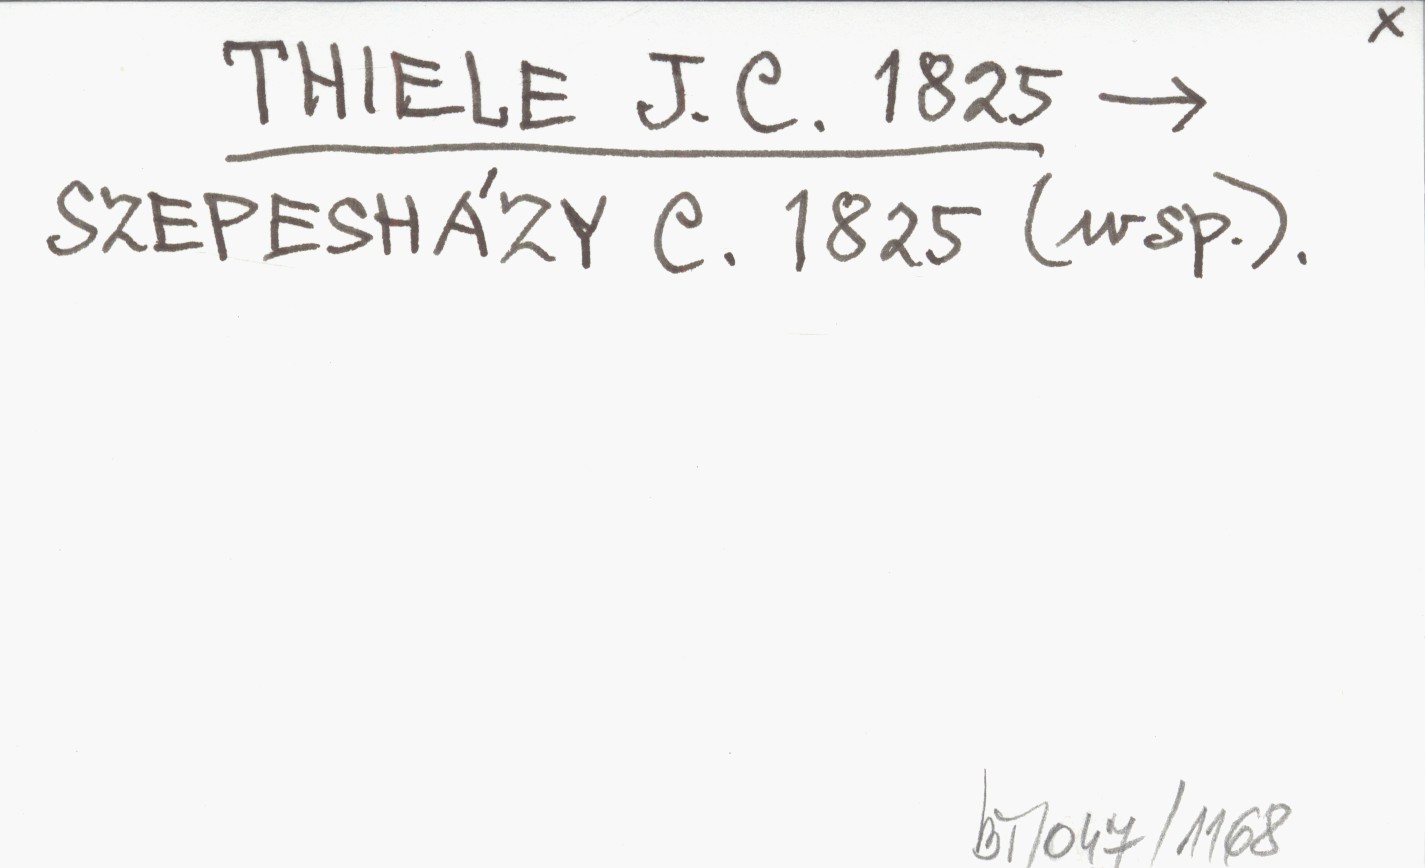 x
THIELE J.C. 1825 →
SZEPESHÁZY C. 1825 (wsp.).
BT/047/1168